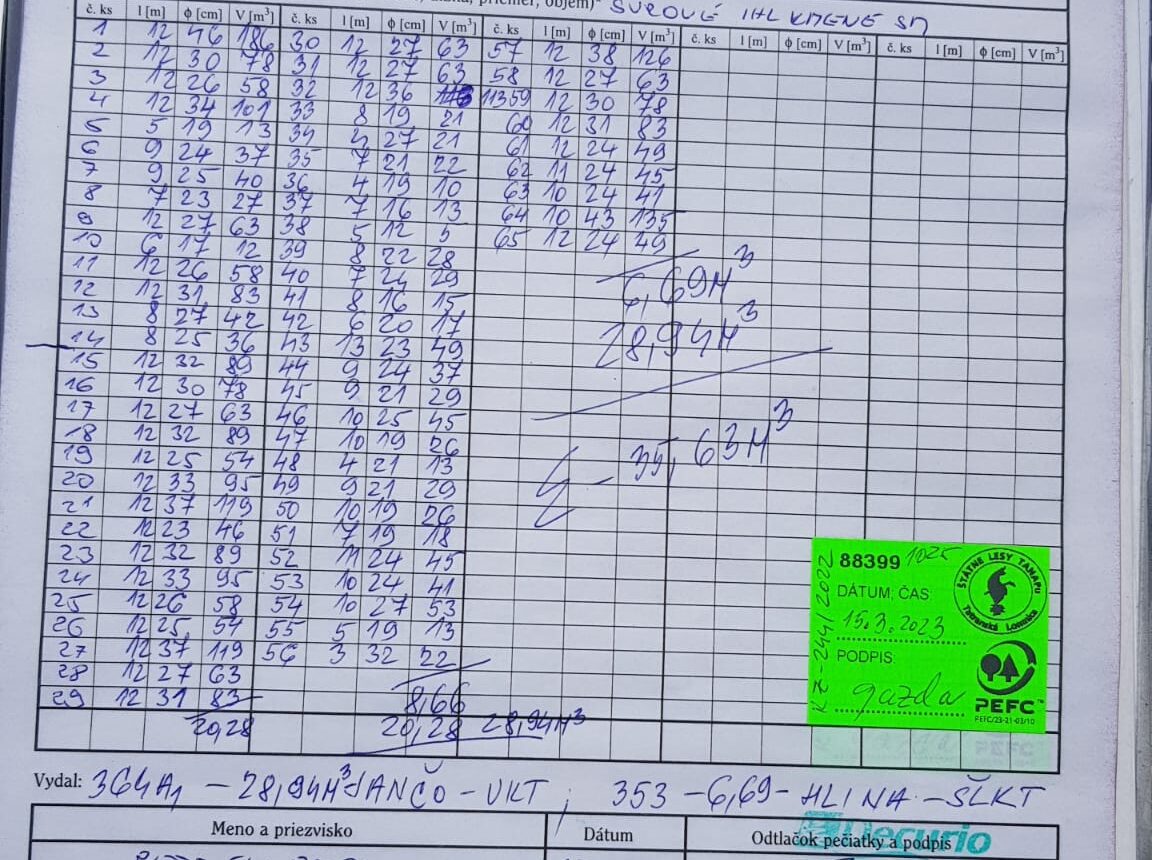 SUROVÉ IHL KMENE SM
č. ks l [m] ϕ [cm] V [m³] č. ks l [m] ϕ [cm] V [m³] č. ks l [m] ϕ [cm] V [m³] č. ks l [m] ϕ [cm] V [m³] č. ks l [m] ϕ [cm] V [m³]
1 12 46 186 30 12 27 63 57 12 38 126
2 12 30 78 31 12 27 63 58 12 27 63
3 12 26 58 32 12 36 113 59 12 30 78
4 12 34 101 33 8 19 21 60 12 31 83
5 5 19 13 34 27 21 61 12 24 49
6 9 24 37 35 7 21 22 62 11 24 45
7 9 25 40 36 4 19 10 63 10 24 41
8 7 23 27 37 7 16 13 64 10 43 135
9 12 27 63 38 5 12 5 65 12 24 49
10 6 17 12 39 8 22 28
11 12 26 58 40 7 24 29
12 12 31 83 41 8 16 15
13 8 27 42 42 6 20 17
14 8 25 36 43 13 23 49
15 12 32 89 44 9 24 37
16 12 30 78 45 9 21 29
17 12 27 63 46 10 25 45
18 12 32 89 47 10 19 26
19 12 25 54 48 4 21 13
20 12 33 95 49 9 21 29
21 12 37 119 50 10 19 26
22 12 23 46 51 7 19 18
23 12 32 89 52 11 24 45
24 12 33 95 53 10 24 41
25 12 26 58 54 10 27 53
26 12 25 54 55 5 19 13
27 12 37 119 56 3 32 22
28 12 27 63
29 12 31 83 8,66
20,28 20,28 28,94M³
6,69M³
28,94M³
35,63M³
88399 1025
DÁTUM, ČAS:
15.3.2023
PODPIS:
gazda
KZ-244/2022
ŠTÁTNE LESY TANAPU
Tatranská Lomnica
PEFC™
PEFC/23-21-03/10
Vydal: 364A1 – 28,94M³ JANČO – VKT ; 353 – 6,69 – HLINA – ŠLKT
Meno a priezvisko Dátum Odtlačok pečiatky a podpis
Decurio